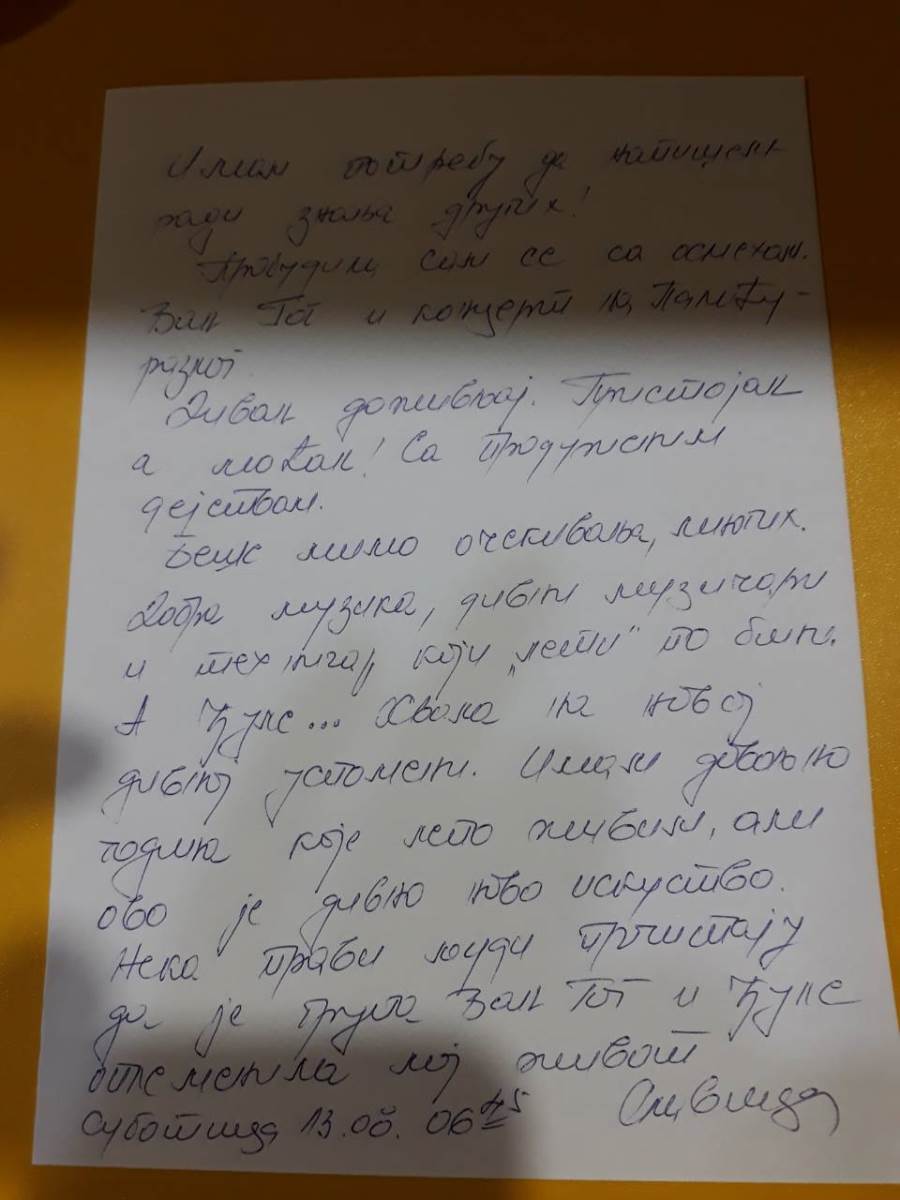 Имам потребу да напишем
ради знања других!
Пробудила сам се са осмехом.
Ван Гог и концерт на Палићу -
разлог.
Диван доживљај. Пристојан
а моћан! Са продуженим
дејством.
Беше мимо очекивања, многих.
Добра музика, дивни музичари
и техничар, који „лети" по бини.
А Ђуле... Хвала на новој
дивној успомени. Имам довољно
година које лепо живим, али
ово је дивно ново искуство.
Нека прави људи прочитају
да је група Ван Гог и Ђуле
оплеменила мој живот
Суботица 13.08. 06 45